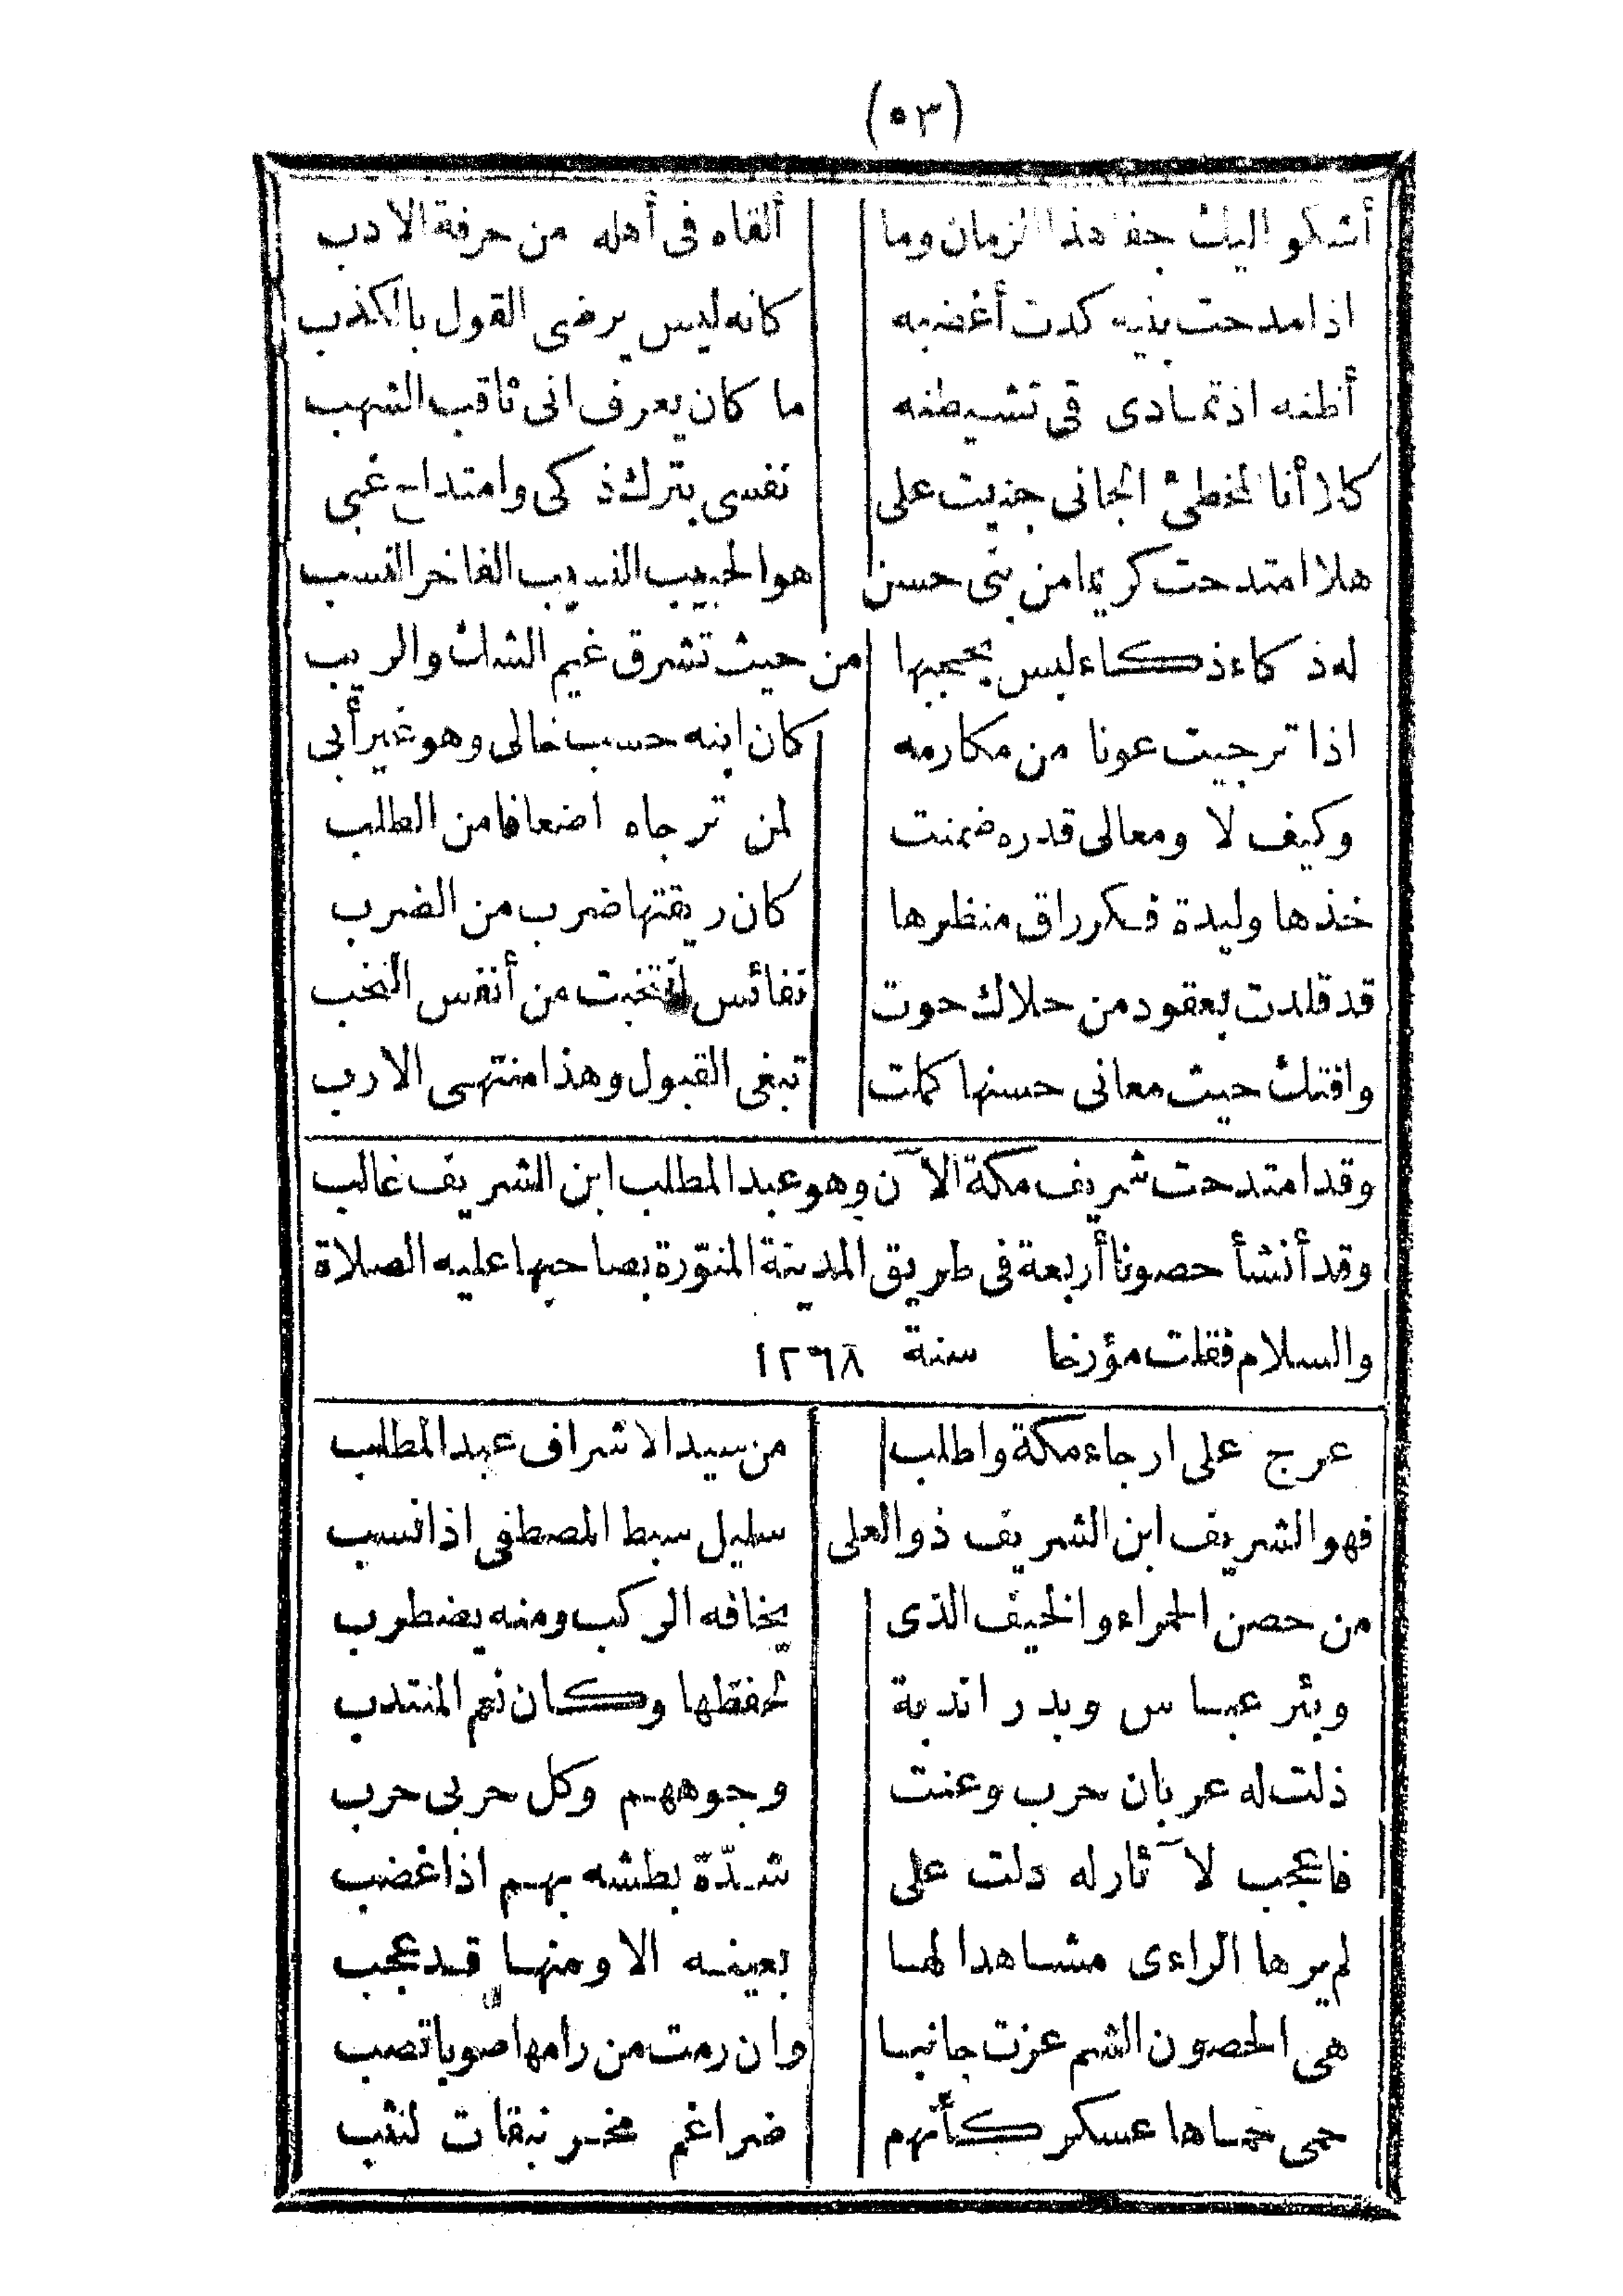 (٥٣)
أشكو اليك جفا هذا الزمان وما ألقاه فى أهله من حرفة الادب
اذا مدحت بنيه كدت أغضبه كانه ليس يرضى القول بالكذب
أظنه اذ تمادى فى تشيطنه ما كان يعرف انى ثاقب الشهب
كلا أنا المخطئ الجانى جنيت على نفسى بترك ذكى وامتداح غبى
هلا امتدحت كريما من بنى حسن هو الحبيب النسيب الفاخر النسب
له ذكاء ذكاء ليس يحجبها من حيث تشرق غيم الشك والريب
اذا ترجيت عونا من مكارمه كان ابنه حسب خالى وهو غير أبى
وكيف لا ومعالى قدره ضمنت لمن ترجاه اضعافا من الطلب
خذها وليدة فكر راق منظرها كان ريقتها ضرب من الضرب
قد قلدت بعقود من حلاك حوت نفائس انتخبت من أنفس النخب
وافتك حيث معانى حسنها كملت تبغى القبول وهذا منتهى الارب
وقد امتدحت شريف مكة الآن وهو عبد المطلب ابن الشريف غالب
وقد أنشأ حصونا أربعة فى طريق المدينة المنوّرة بصاحبها عليه الصلاة
والسلام فقلت مؤرخا سنة ١٢٦٨
عرج على ارجاء مكة واطلب من سيد الاشراف عبد المطلب
فهو الشريف ابن الشريف ذو العلى سليل سبط المصطفى اذا نسب
من حصن الحمراء والخيف الذى يخافه الركب ومنه يضطرب
وبئر عباس وبدر اندية لحفظها وكان نعم المنتدب
ذلت له عربان حرب وعنت وجوههم وكل حربى حرب
فاعجب لآثار له دلت على شدّة بطشه بهم اذا غضب
لم يرها الراءى مشاهدا لها بعينه الا ومنها قد عجب
هى الحصون الشم عزت جانبا وان رمت من رامها صوبا تصب
حمى حماها عسكر كأنهم ضراغم نبقات لنثب